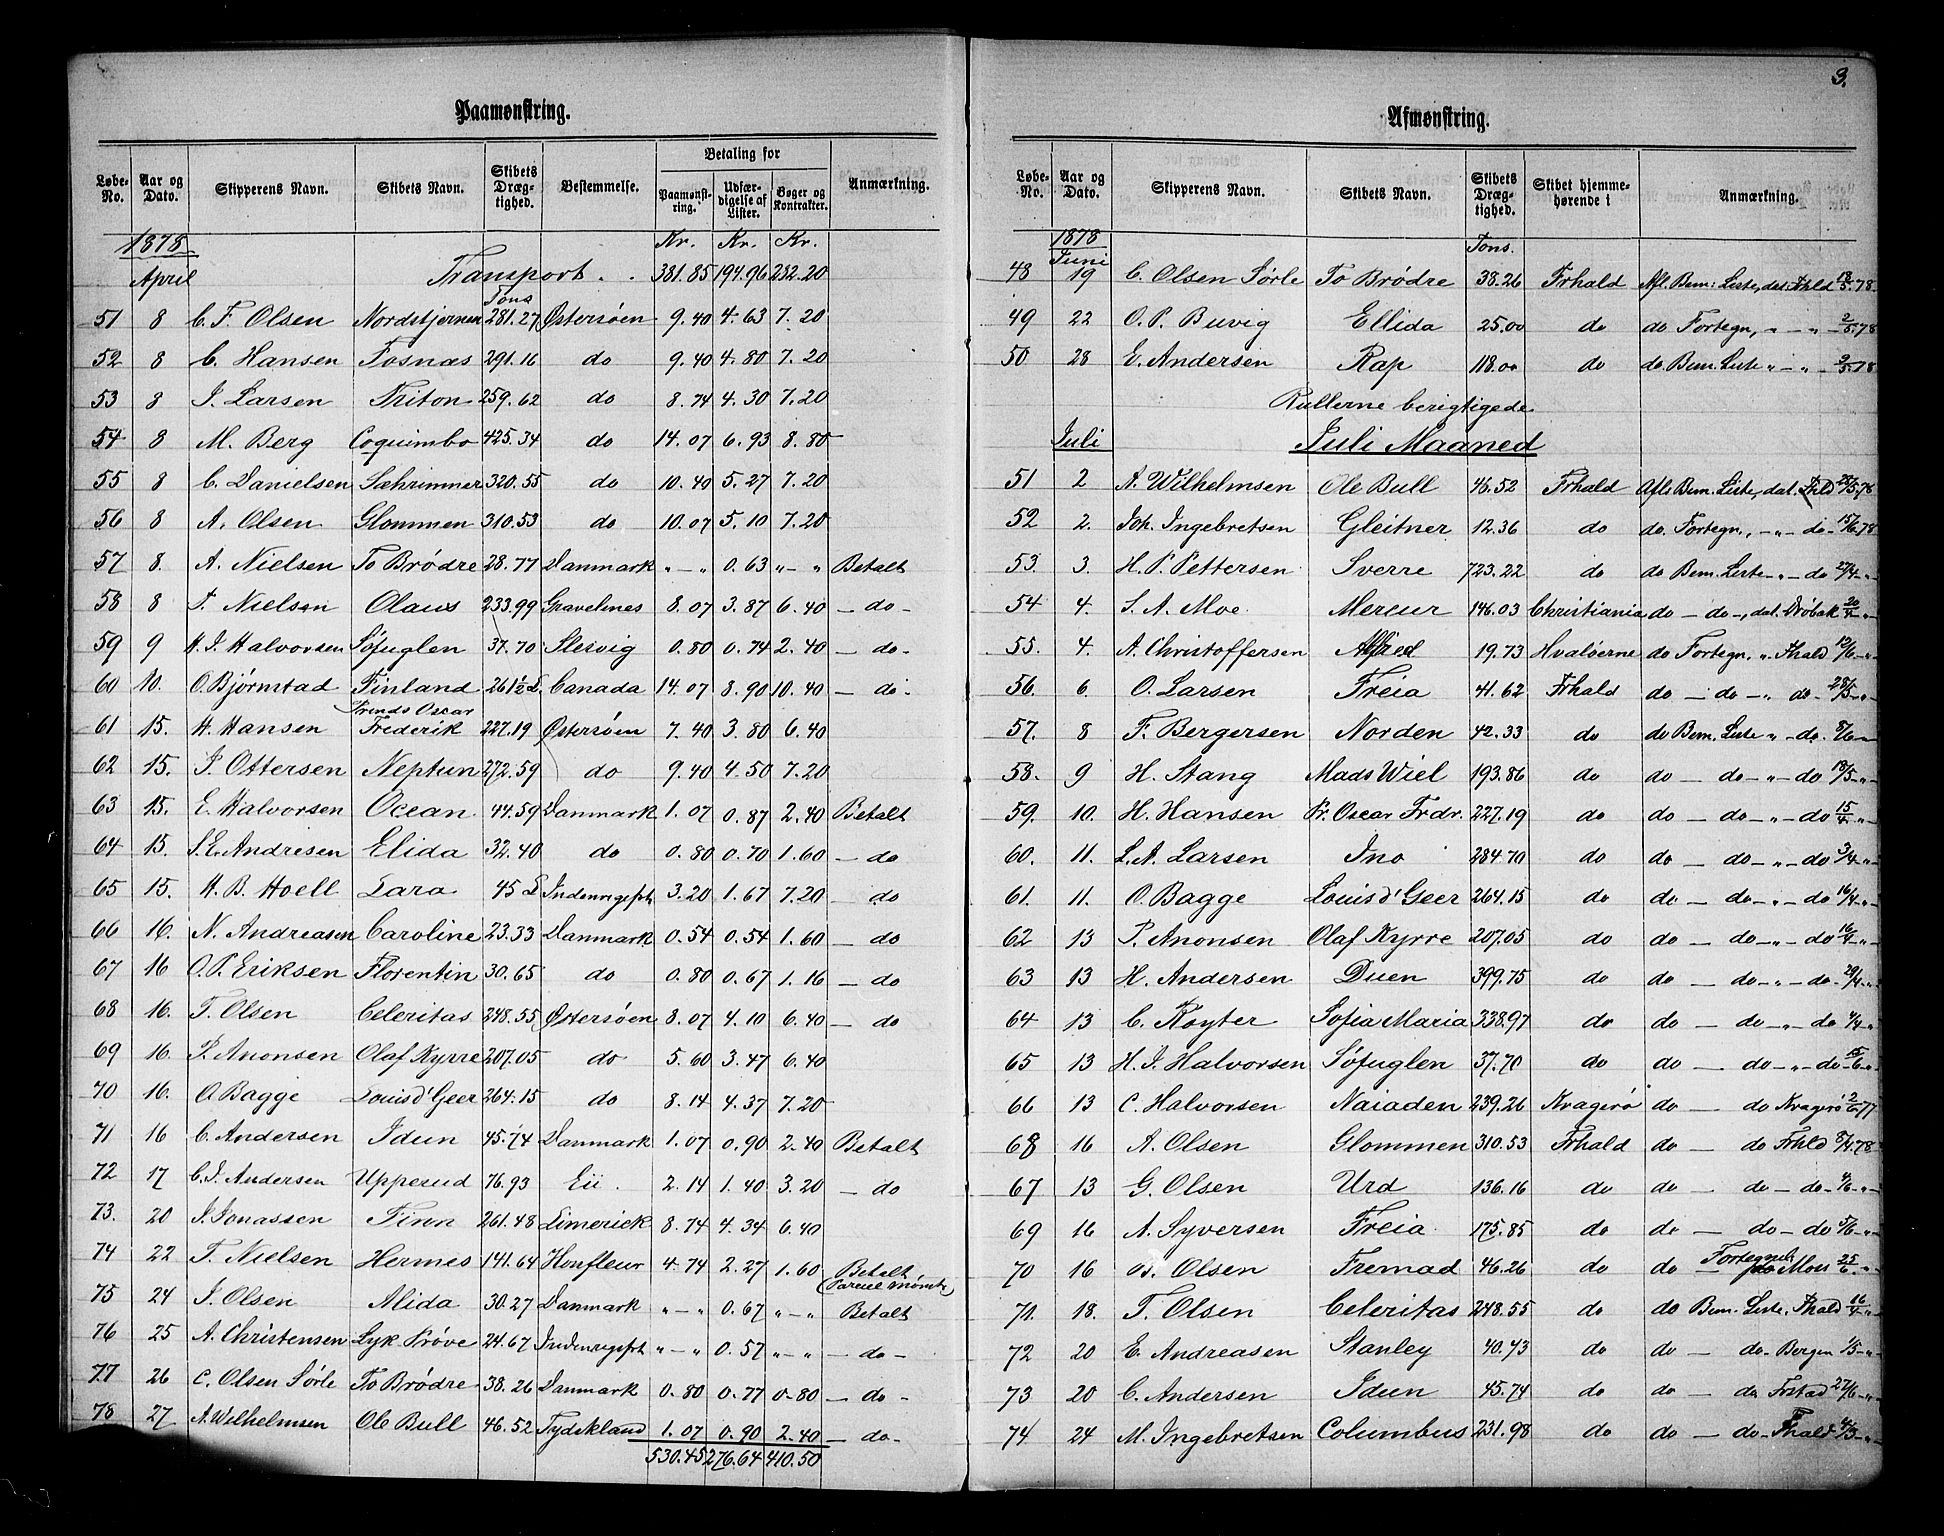 3.
Paamønstring.
Løbe-No. Aar og Dato. Skipperens Navn. Skibets Navn. Skibets Dræg-tighed. Bestemmelse. Betaling for Paamønst-ring. Udfær-digelse af Lister. Bøger og Kontrakter. Anmærkning.
1878 Kr. Kr. Kr.
April Transport . . 381.85 194.96 232.20
Tons
51 8 C. F. Olsen Nordstjernen 281.27 Østersøen 9.40 4.63 7.20
52 8 C. Hansen Fosnæs 291.16 do 9.40 4.80 7.20
53 8 J. Larsen Triton 259.62 do 8.74 4.30 7.20
54 8 M. Berg Coquimbo 425.34 do 14.07 6.93 8.80
55 8 C. Danielsen Sæhrimner 320.55 do 10.40 5.27 7.20
56 8 A. Olsen Glommen 310.53 do 10.07 5.10 7.20
57 8. A. Nielsen To Brødre 28.77 Danmark " - " 0.63 " - " Betalt
58 8 T. Nielsen Olaus 233.99 Gravelines 8.07 3.87 6.40 - do -
59 9 H. J. Halvorsen Søfuglen 37.70 Slesvig 0.80 0.74 2.40 - do -
60 10. O. Bjørnstad Finland 261½ L Canada 14.07 8.90 10.40 - do -
61 15. H. Hansen Prinds Oscar Frederik 227.19 Østersøen 7.40 3.80 6.40
62 15. J. Ottersen Neptun 272.59 do 9.40 4.50 7.20
63 15. E. Halvorsen Ocean 44.59 Danmark 1.07 0.87 2.40 Betalt
64 15. S. E. Andresen Elida 32.40 do 0.80 0.70 1.60 - do
65 15. H. B. Hoell Lara 45 L Indenrigsfrt 3.20 1.67 7.20 - do
66 16. N. Andreasen Caroline 23.33 Danmark 0.54 0.54 1.60 - do
67 16 O. P. Eriksen Florentin 30.65 do 0.80 0.67 1.16 - do
68 16. T. Olsen Celeritas 248.55 Østersøen 8.07 4.10 6.40 - do
69 16. P. Anonsen Olaf Kyrre 207.05 do 5.60 3.47 6.40
70 16. O. Bagge Louis d'Geer 264.15 do 8.14 4.37 7.20
71 16 C. Andersen Idun 45.74 Danmark 1.07 0.90 2.40 Betalt
72 17 C. J. Andersen Upperud 76.93 Eii. 2.14 1.40 3.20 - do
73. 20 J. Jonassen Finn 261.48 Limerick 8.74 4.34 6.40
74 22 T. Nielsen Hermes 141.64 Honfleur 4.74 2.27 1.60 Betalt
75 24 J. Olsen Alida 30.27 Danmark " - " 0.67 " - " Betalt
76 25 A. Christensen Lyk Prøve 24.67 Indenrigsfrt " - " 0.57 " - " - do -
77 26 C. Olsen Sørle To Brødre 38.26 Danmark 0.80 0.77 0.80 - do -
78 27 A. Wilhelmsen Ole Bull 46.52 Tydskland 1.07 0.90 2.40 - do -
530.45 276.64 410.50
Afmønstring.
Løbe-No. Aar og Dato. Skipperens Navn. Skibets Navn. Skibets Dræg-tighed. Skibet hjemme-hørende i Anmærkning.
1878 Tons.
Juni
48 19 C. Olsen Sørle To Brødre 38.26 Frhald Afl. Bem: Liste, dat. Fhld 13/5.78.
49 22 O. P. Buvig Ellida 25.00 do do Fortegn, " - " - 2/5.78
50 28 E. Andersen Rap 118.00 do do Bem. Liste " - " - 2/5.78
Rullerne berigtigede
Juli Juli Maaned
51 2 A. Wilhelmsen Ole Bull 46.52 Frhald Afl. Bem. Liste, dat. Fhld 25/5.78
52 2. Joh. Ingebretsen Gleitner 12.36 do do Fortegn., - " - do - 15/6.78
53. 3. H. P. Pettersen Sverre 723.22 do do Bem. Liste - " - do 27/4 - "
54 4. S. A. Moe Mercur 146.03 Christiania do - do -, dat. Drøbak 20/4 "
55. 4. A. Christoffersen Alfred 19.73 Hvaløerne do Fortegn. " Fhald 12/6 - "
56. 6. O. Larsen Freia 41.62 Frhald do - do - " do - 28/5 - "
57. 8 F. Bergersen Norden 42.33 do do Bem. Liste " - do. 8/6 - "
58. 9 H. Stang Mads Wiel 193.86 do do - do - " - do 18/5 - "
59. 10. H. Hansen Pr. Oscar Frdr. 227.19 do do - do - " - do 15/4 "
60. 11. L. A. Larsen Ino 284.70 do do - do - " - do 3/4 "
61. 11. O. Bagge Louis d'Geer 264.15 do do - do - " - do 16/4 "
62 13 P. Anonsen Olaf Kyrre 207.05 do do - do - " - do 16/4 "
63 13 H. Andersen Duen 399.75 do do - do - " - do - 29/4 - "
64 13 C. Røyter Sofia Maria 338.97 do do - do - " - do 4/4 - "
65 13 H. J. Halvorsen Søfuglen 37.70 do do - do - " - do 15/6 - "
66 13 C. Halvorsen Naiaden 239.26 Kragerø do - do Kragerø 2/6.77
68 16 A. Olsen Glommen 310.53 Frhald do - do Frhld 8/4.78
67 13 G. Olsen Urd 136.16 do do - do - do - 4/6 - "
69 16 A. Syversen Freia 175.85 do do - do - do 5/6 - "
70 16 B. Olsen Fremad 46.26 do do Fortegnelse Moss 25/6 - "
71. 18. T. Olsen Celeritas 248.55 do do Bem. Liste, Fhald 16/4 - "
72 20 E. Andreasen Stanley 40.43 do do - do - Bergen 1/5 - "
73 20 C. Andersen Idun 45.74 do do - do Frstad 27/6 - "
74 24 M. Ingebretsen Columbus 231.98 do do - do - Fhald 4/3 - "